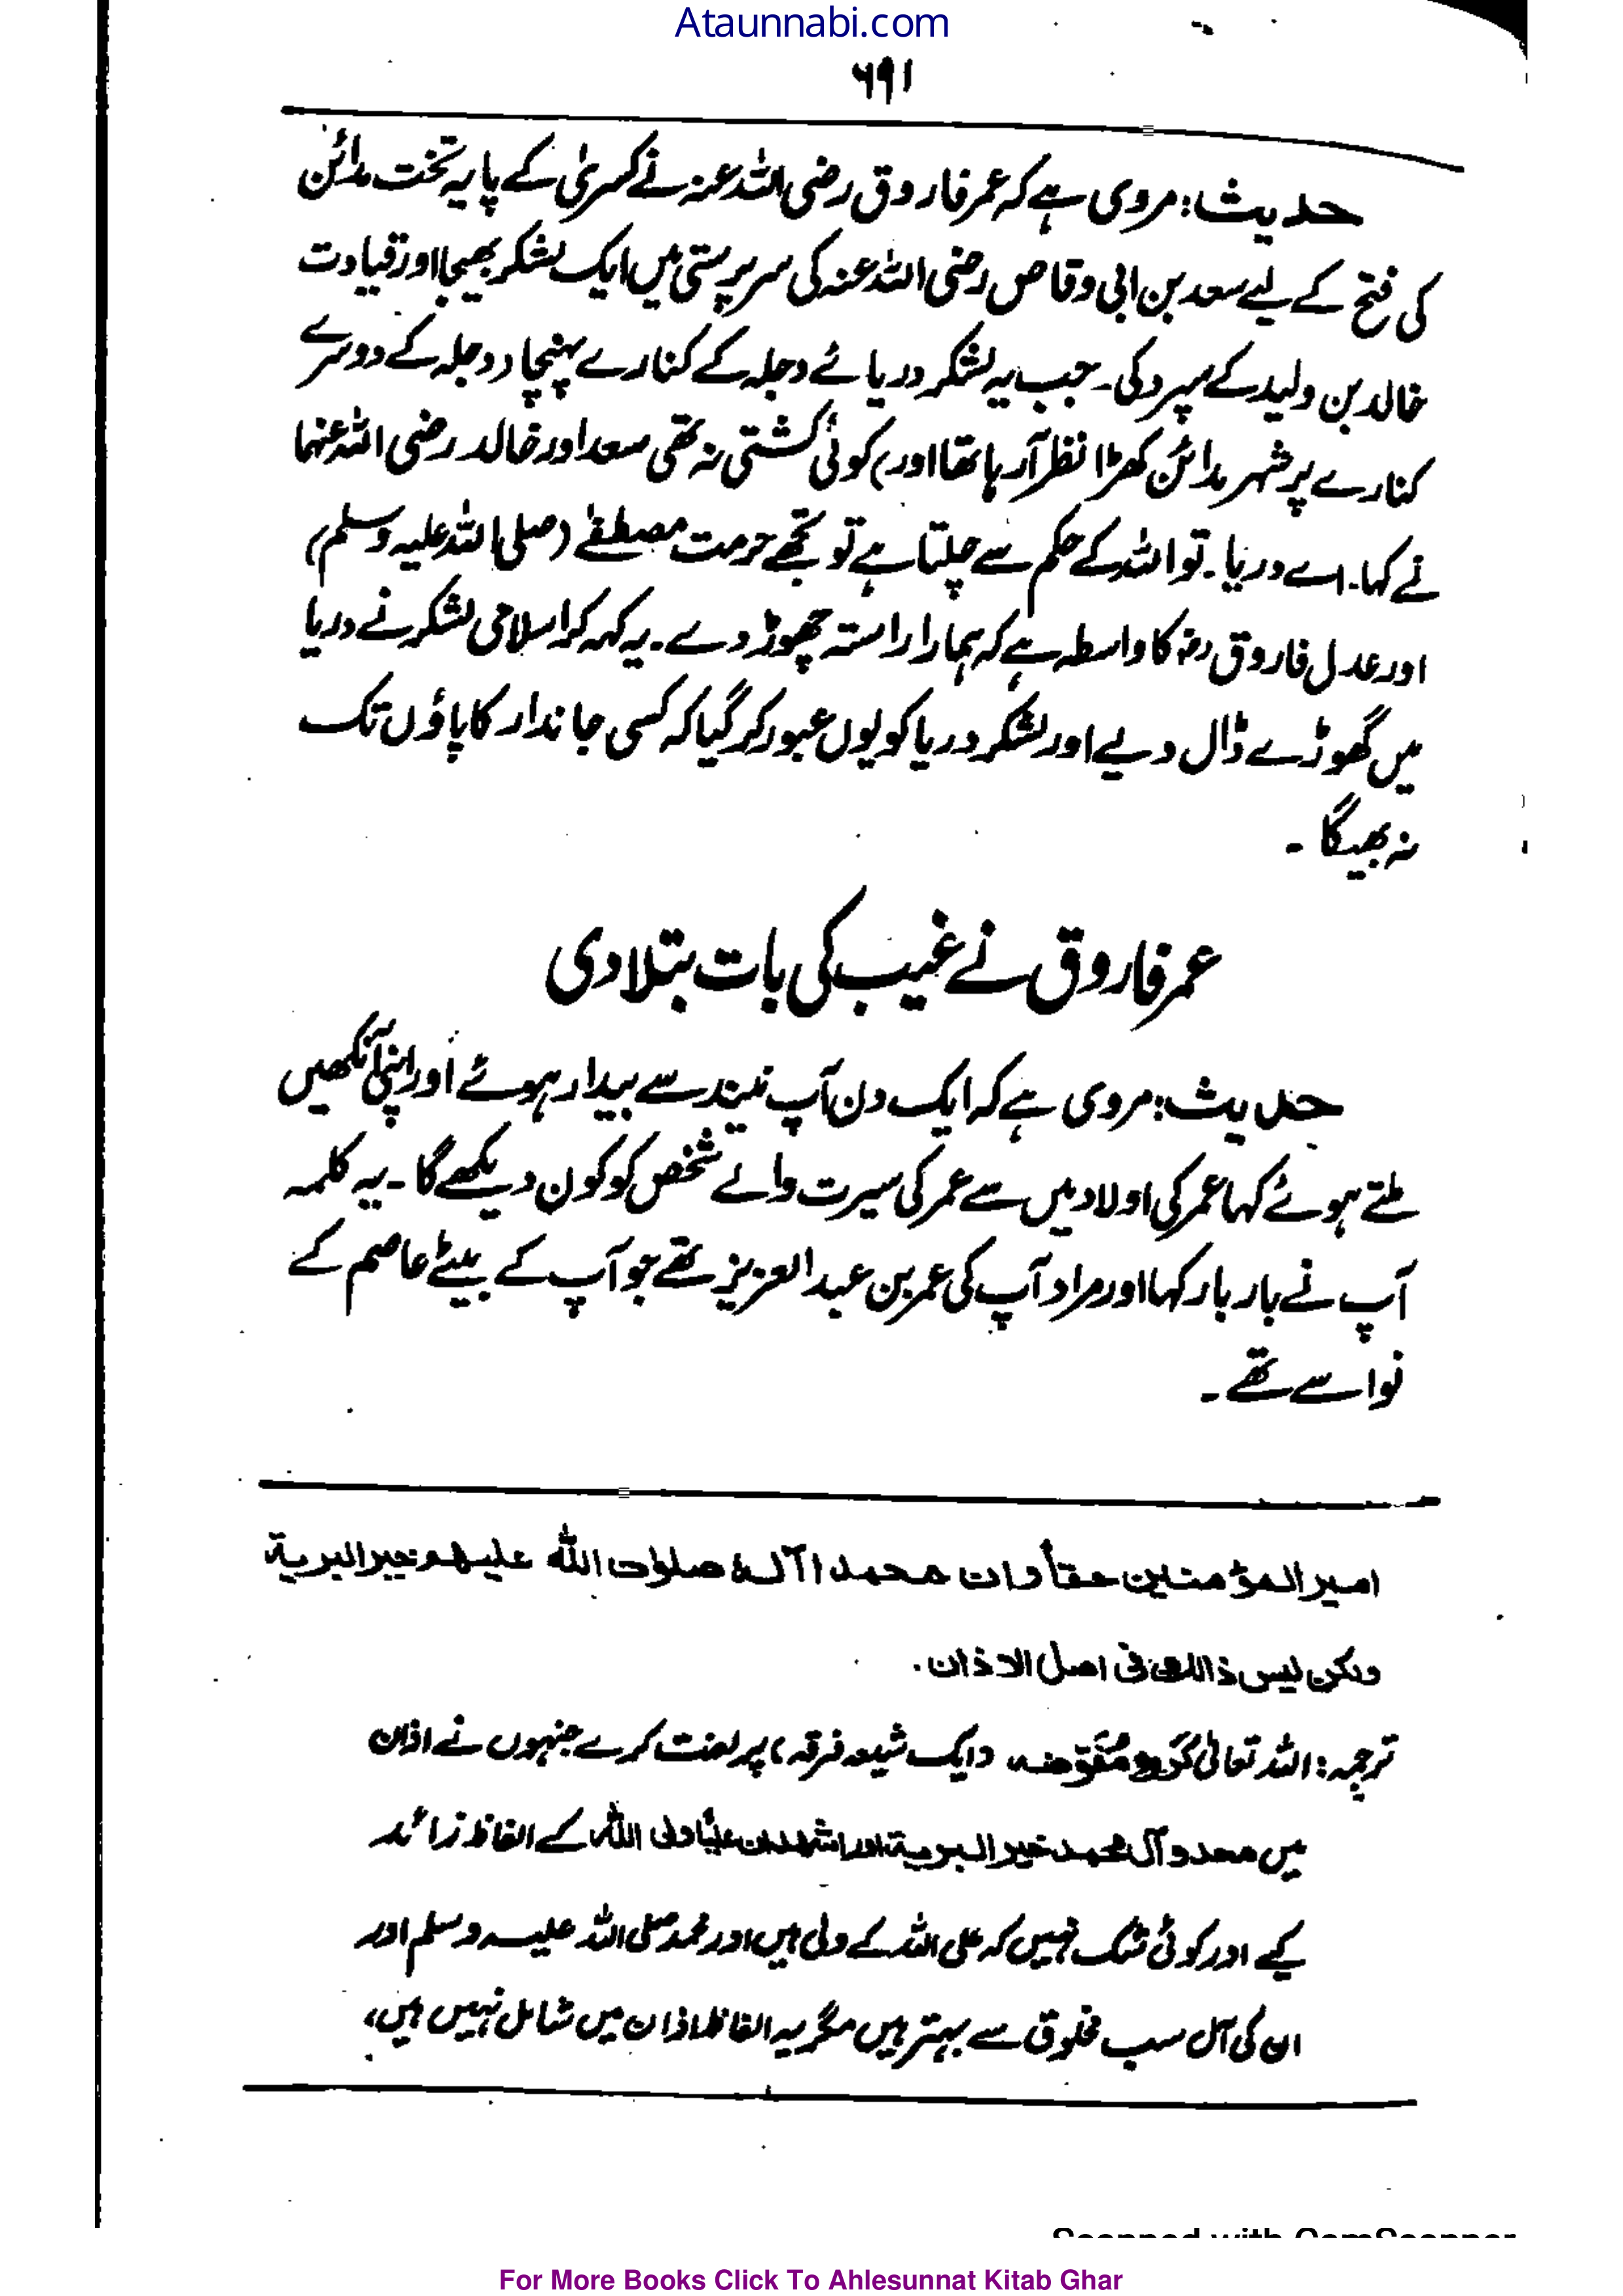 Ataunnabi.com
۶۹۱
حدیث: مروی ہے کہ عمر فاروق رضی اللہ عنہ نے کسریٰ کے پایہ تخت مدائن
کی فتح کے لیے سعد بن ابی وقاص رضی اللہ عنہ کی سرپرستی میں ایک لشکر بھیجا اور قیادت
خالد بن ولید کے سپرد کی۔ جب یہ لشکر دریائے دجلہ کے کنارے پہنچا (دجلہ کے دوسرے
کنارے پر شہر مدائن کھڑا نظر آ رہا تھا اور) کوئی کشتی نہ تھی سعد اور خالد رضی اللہ عنہما
نے کہا۔ اے دریا۔ تو اللہ کے حکم سے چلتا ہے تو تجھے حرمت مصطفےٰ (صلی اللہ علیہ وسلم)
اور عدل فاروق رضؓ کا واسطہ ہے کہ ہمارا راستہ چھوڑ دے۔ یہ کہہ کر اسلامی لشکر نے دریا
میں گھوڑے ڈال دیے اور لشکر دریا کو یوں عبور کر گیا کہ کسی جاندار کا پاؤں تک
نہ بھیگا۔
عمر فاروق نے غیب کی بات بتلا دی
حدیث: مروی ہے کہ ایک دن آپ نیند سے بیدار ہوئے اور اپنی آنکھیں
ملتے ہوئے کہا عمر کی اولاد میں سے عمر کی سیرت والے شخص کو کون دیکھے گا۔ یہ کلمہ
آپ نے بار بار کہا اور مراد آپ کی عمر بن عبدالعزیز تھے جو آپ کے بیٹے عاصم کے
نواسے تھے۔
امیر المؤمنین حقاً وان محمدا وآلہ صلوٰت اللہ علیہم خیر البریۃ
ولکن لیس ذالک فی اصل الاذان۔
ترجمہ: اللہ تعالیٰ گروہ مُفَوِّضہ (ایک شیعہ فرقہ) پر لعنت کرے جنہوں نے اذان
میں محمد و آل محمد خیر البریۃ اور اشھد ان علیًا ولی اللہ کے الفاظ زائد
کیے اور کوئی شک نہیں کہ علی اللہ کے ولی ہیں اور محمد صلی اللہ علیہ وسلم اور
ان کی آل سب مخلوق سے بہتر ہیں مگر یہ الفاظ اذان میں شامل نہیں ہیں،
Scanned with CamScanner
For More Books Click To Ahlesunnat Kitab Ghar